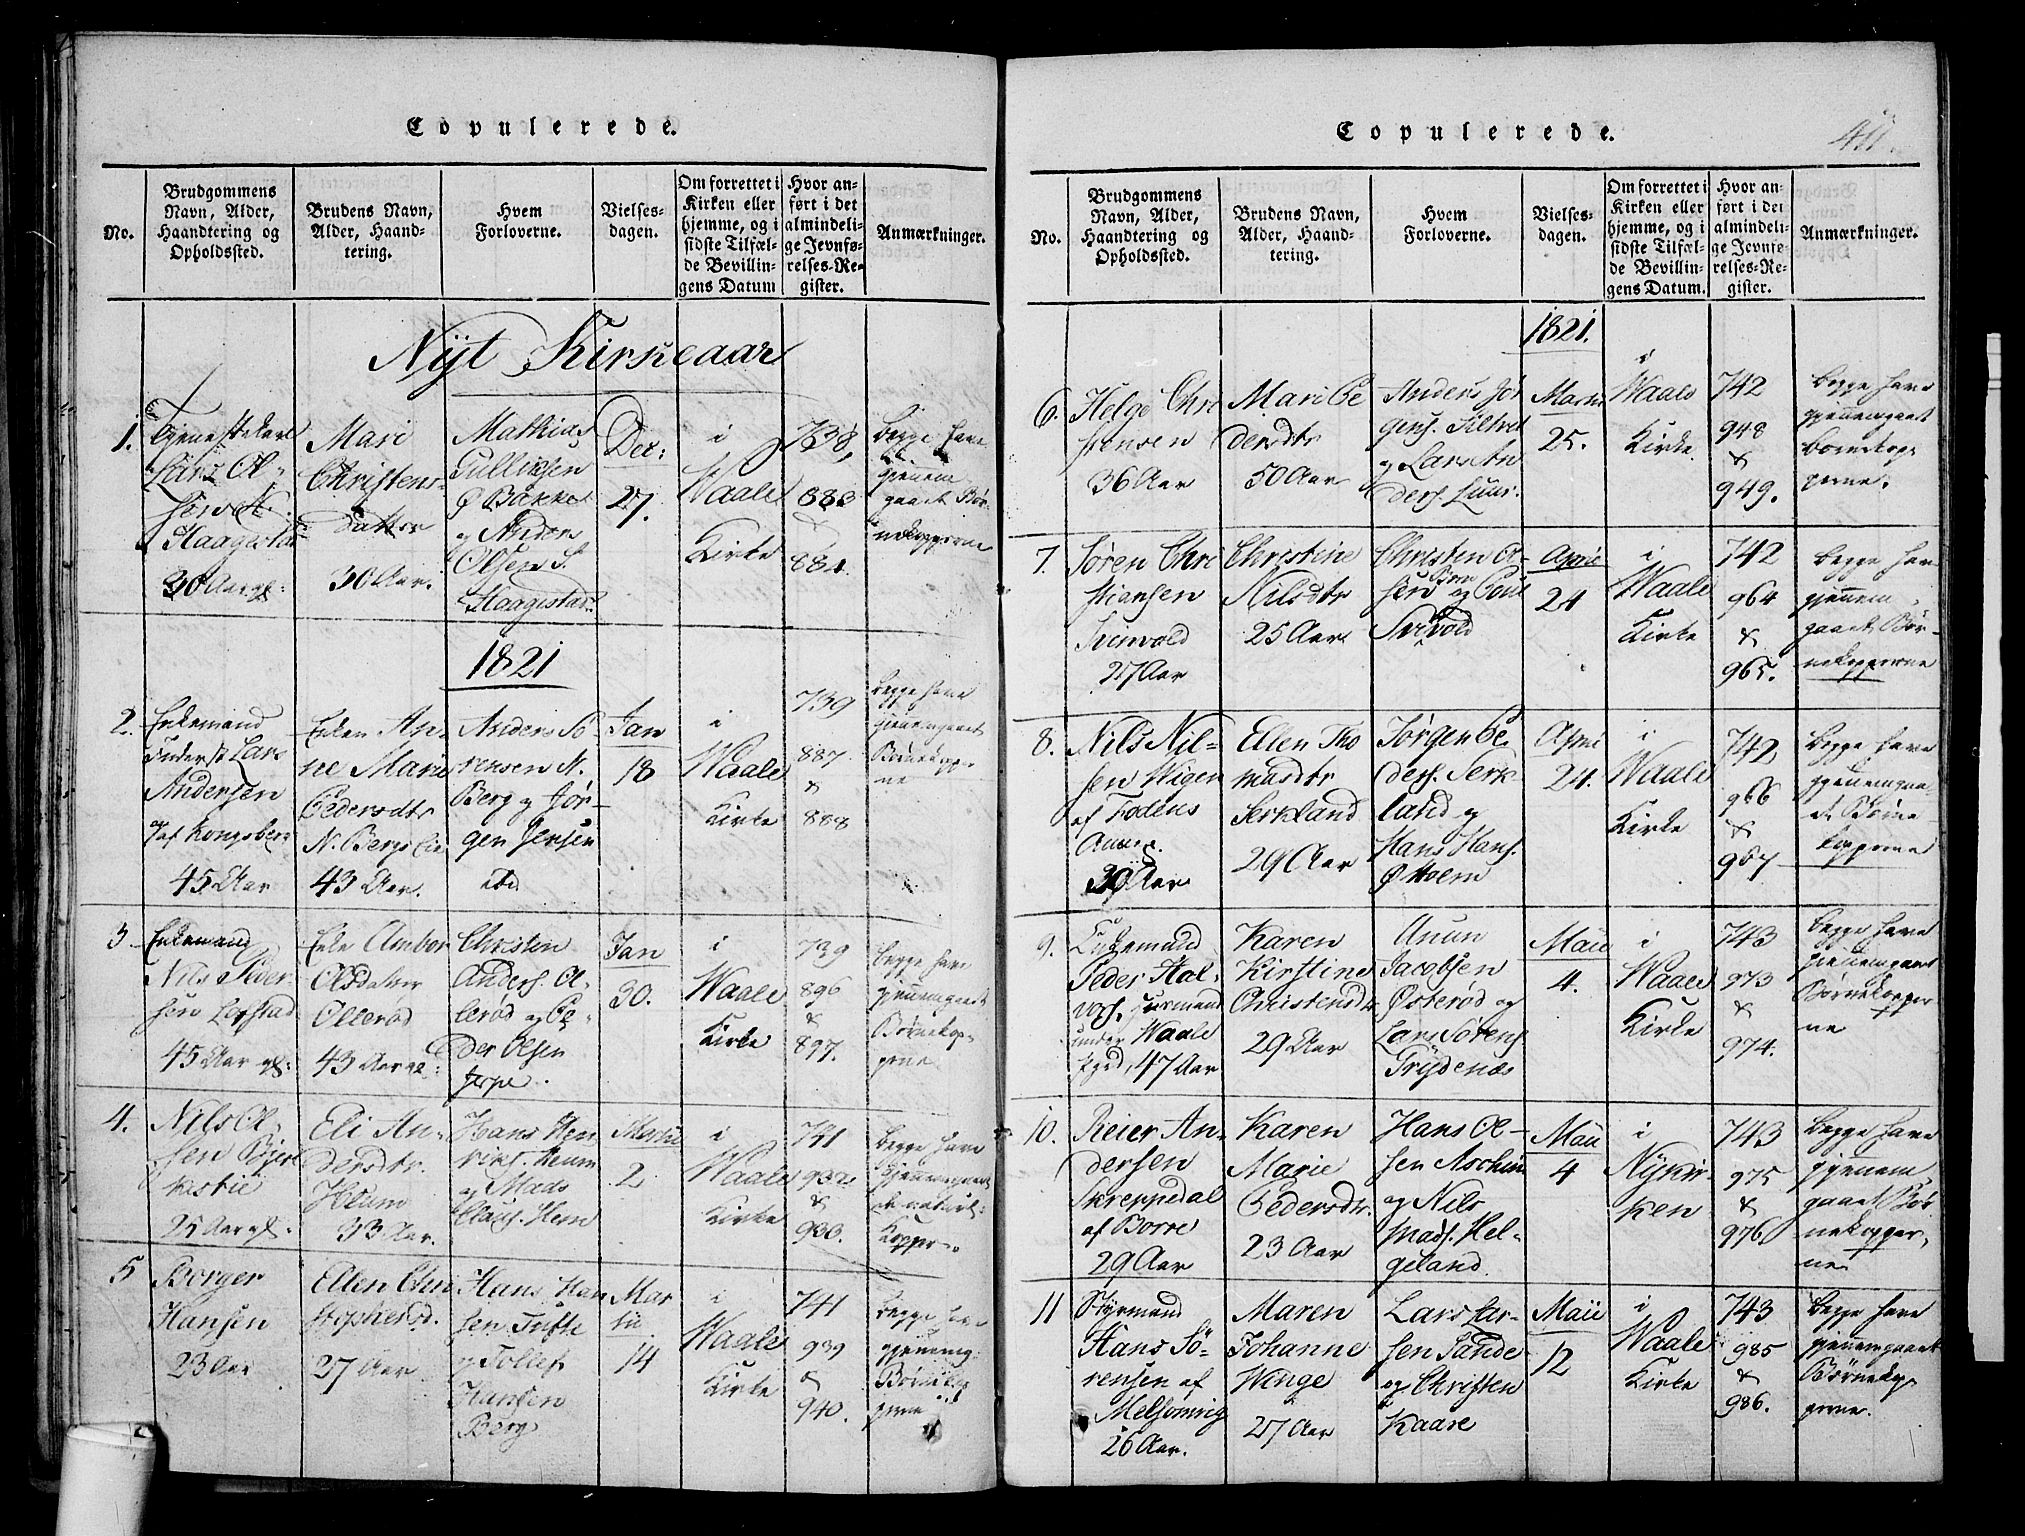 Copulerede.
No.
Brudgommens
Navn, Alder,
Haandtering og
Opholdssted.
Brudens Navn,
Alder, Haand-
tering.
Hvem
Forloverne.
Vielses-
dagen.
Om forrettet i
Kirken eller
hjemme, og i
sidste Tilfæl-
de Bevillin-
gens Datum
Hvor an-
ført i det
almindeli-
ge Jevnfø-
relses-Re-
gister.
Anmærkninger.
Nyt Kirkeaar
1.
Tjenestekarl
Lars Ol-
sen
Haagestad
30 Aar gl:
Mari
Christens-
datter
30 Aar.
Mathias
Gullichsen
Ø Bakke
og Anders
Olsen S.
Haagestad
Dec:
27.
i
Waale
Kirke
738,
883
&
884.
begge have
gjennem
gaaet Bør-
nekopperne
1821
2.
Enkemand
Inderst Lars
Andersen
af Kongsberg
45 Aar
Enken An-
ne Marie
Pedersdtr
N. Bergs Eie
43 Aar.
Anders Sö
rensen N.
Berg og Jör-
gen Jensen
ibd
Jan
18
i
Waale
Kirke
739
887.
&
888
begge have
gjennemgaaet
Börnekopper-
ne
3.
Enkemand
Nils Peder
sen
45 Aar gl:
Enke Ambor
Olsdatter
Ollerød
43 Aar gl:
Christen
Anders. Ol-
lerød og Pe-
der Olsen
Jerpe.
Jan
30.
i
Waale
Kirke
739
896
&
897.
begge have
gjennemgaaet
Börnekop-
perne
4.
Nils Ol-
sen
25 Aar gl:
Eli An-
dersdtr.
Heum
33 Aar.
Hans Hen
riks. Heum
og Mads
Claus. Hem
Martii
2.
i
Waale
Kirke
741
932
&
933.
begge have
gjennemgaaet
de naturl:
Kopper
5
Borger
Hansen
23 Aar
Ellen Chri
stophersd.
27 Aar
Hans Han
sen Tufte
og Tollef
Hansen
Berg
Mar
tii
14
i
Waale
Kirke
741
939
&
940.
begge have
gjennemg:
Börnekop
perne
Copulerede.
No.
Brudgommens
Navn, Alder,
Haandtering og
Opholdssted.
Brudens Navn,
Alder, Haand-
tering.
Hvem
Forloverne.
Vielses-
dagen.
Om forrettet i
Kirken eller
hjemme, og i
sidste Tilfæl-
de Bevillin-
gens Datum.
Hvor an-
ført i det
almindeli-
ge Jevnfø-
relses-Re-
gister.
Anmærkninger.
1821.
6.
Helge Chri
stensen
36 Aar
Mari Pe
dersdtr
50 Aar
Anders Jör
gens. Filtvet
og Lars An
ders. Luur.
Martii
25.
i
Waale
Kirke
742
948
&
949.
begge have
gjennemgaaet
bornekop-
perne.
7.
Søren Chri
stiansen
Svinvold
27 Aar
Christine
Nilsdtr
25 Aar
Christen Ol-
sen og Poul
Svivold
April
24
i
Waale
Kirke
742
964
&
965.
begge have
gjennem-
gaaet Bör-
nekopperne
8.
Nils Nil-
sen Wigen
af Fodens
30 Aar
Ellen Tho
masdtr
Serkland
29 Aar
Jørgen Pe
ders. Serk
land og
Hans Hans.
Ø Holm
April
24.
i
Waale
Kirke
742
966
&
967
begge have
gjennemgaa-
et Börne
kopperne
9.
Enkemand
Peder Hal-
vors. Huusmand
under Waale
Pgrd, 47 Aar
Karen
Kirstine
Christensdtr
29 Aar
Anun
Jacobsen
Østerød og
Lars Sørens
Trydenæs
Maii
4.
i
Waale
Kirke
743
973
&
974.
begge have
gjennemgaaet
Børnekopper
ne
10.
Reier An-
dersen
Skreppedal
af Borre
29 Aar
Karen
Marie
Pedersdtr.
23 Aar
Hans Ol-
sen Aschim
og Nils
Mads. Hel-
geland.
Maii
4
i
Nykir-
ken
743
975
&
976
begge have
gjennem
gaaet Bør
nekopper,
ne
11
Styrmand
Hans Sö-
rensen af
Melsomvig
26 Aar.
Maren
Johanne
Winge
27 Aar
Lars Lar-
sen Sande
og Christen
Kaare
Maii
12
i
Waale
Kirke
743
985
&
986.
begge have
gjennemgaaet
Börnekop
perne.